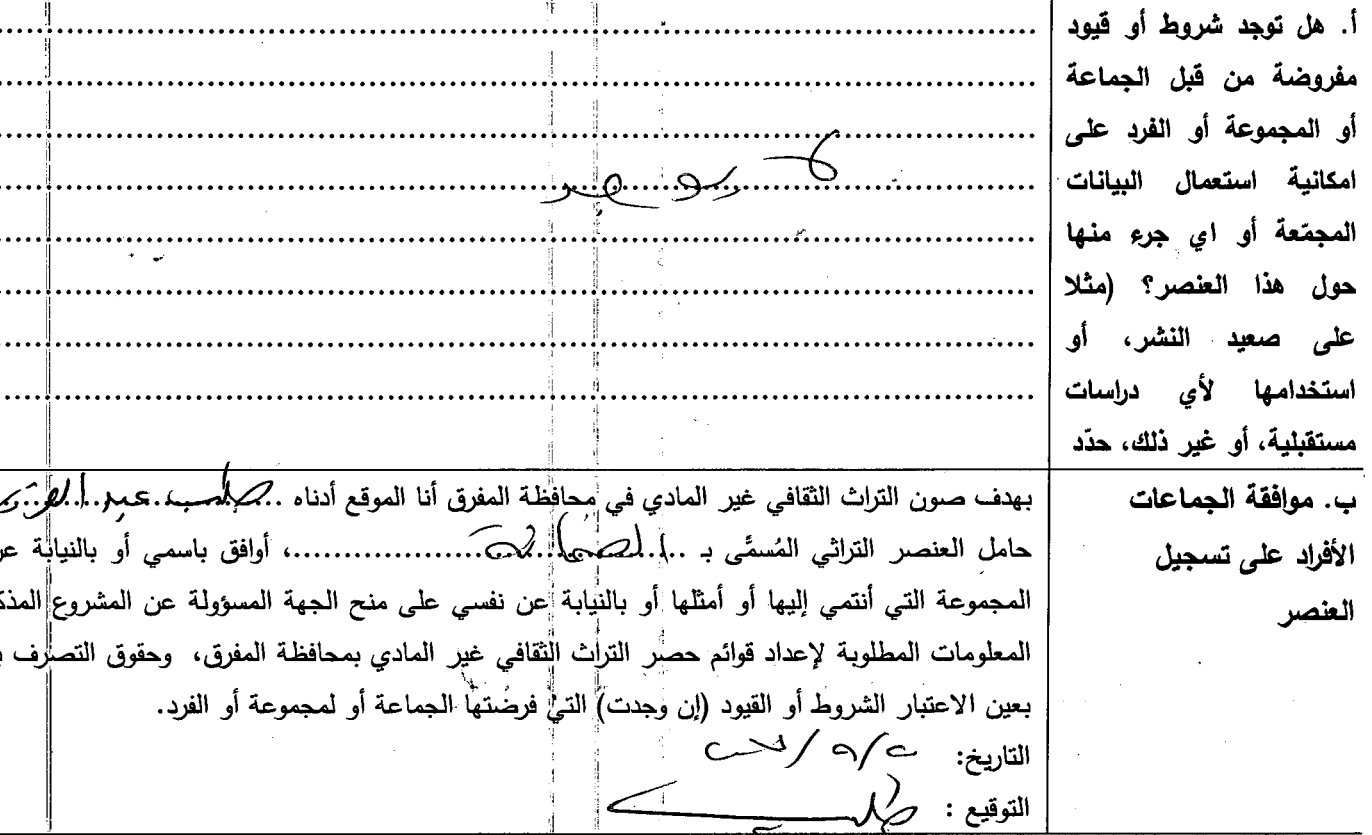 أ. هل توجد شروط أو قيود
مفروضة من قبل الجماعة
أو المجموعة أو الفرد على
امكانية استعمال البيانات
المجمّعة أو اي جرء منها
حول هذا العنصر؟ (مثلا
على صعيد النشر، أو
استخدامها لأي دراسات
مستقبلية، أو غير ذلك، حدّد
لا يوجد
ب. موافقة الجماعات
الأفراد على تسجيل
العنصر
بهدف صون التراث الثقافي غير المادي في محافظة المفرق أنا الموقع أدناه ..طلب عبد
حامل العنصر التراثي المُسمَّى بـ ..................، أوافق باسمي أو بالنيابة عن
المجموعة التي أنتمي إليها أو أمثلها أو بالنيابة عن نفسي على منح الجهة المسؤولة عن المشروع المذك
المعلومات المطلوبة لإعداد قوائم حصر التراث الثقافي غير المادي بمحافظة المفرق، وحقوق التصرف ب
بعين الاعتبار الشروط أو القيود (إن وجدت) التي فرضتها الجماعة أو لمجموعة أو الفرد.
التاريخ:
التوقيع :